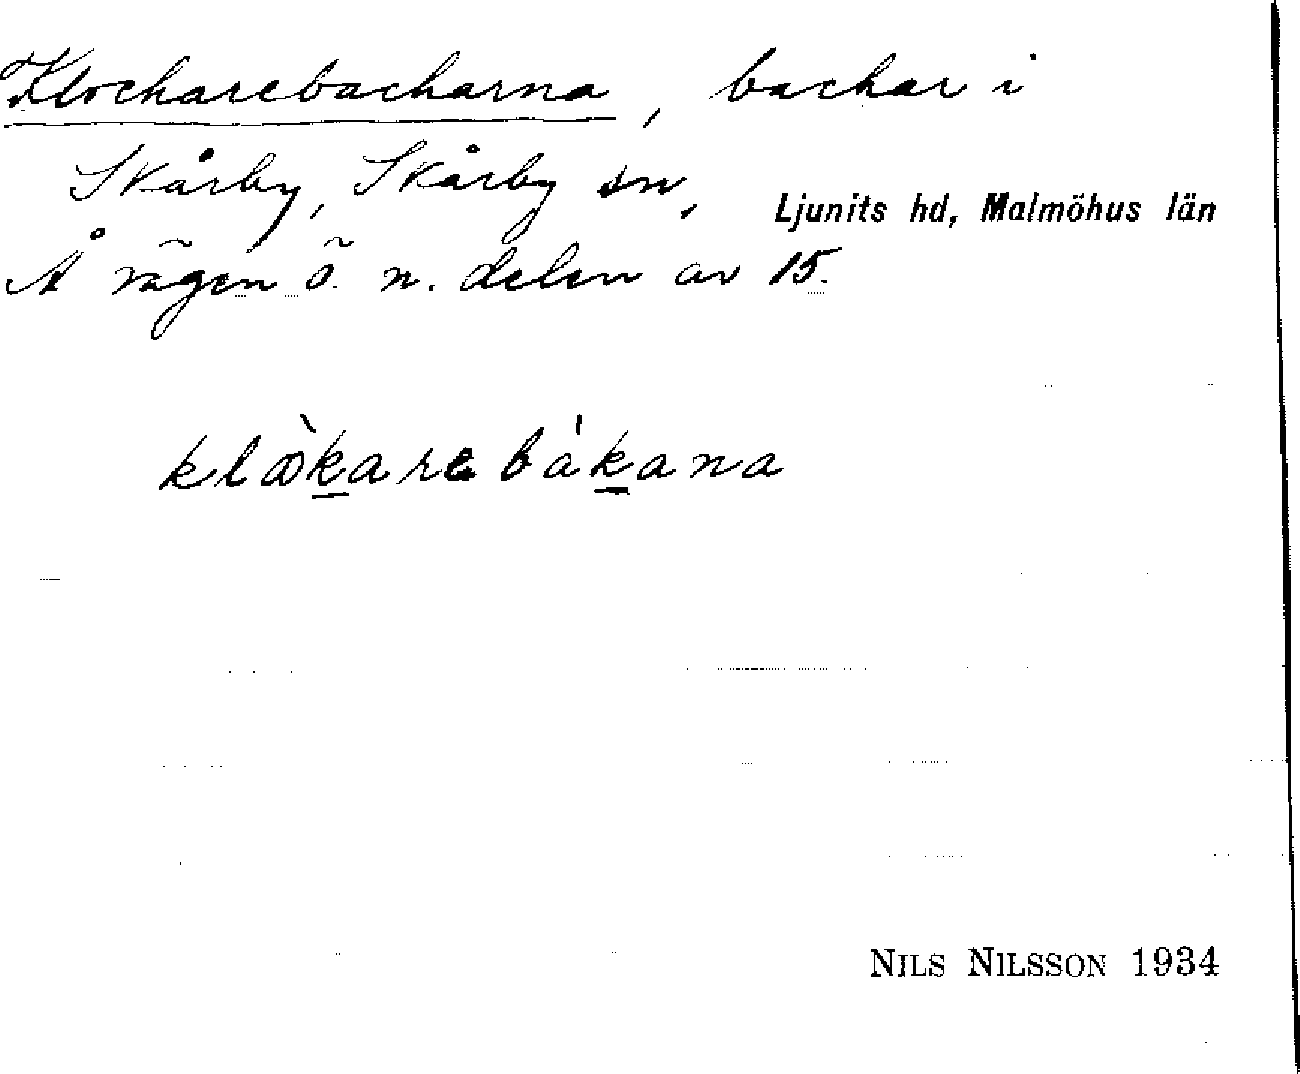 Klockarebackarna, backar i
Skårby, Skårby sn, Ljunits hd, Malmöhus län
Å vägen ö. n. delen av 15.
klὼkarebákana
NILS NILSSON 1934